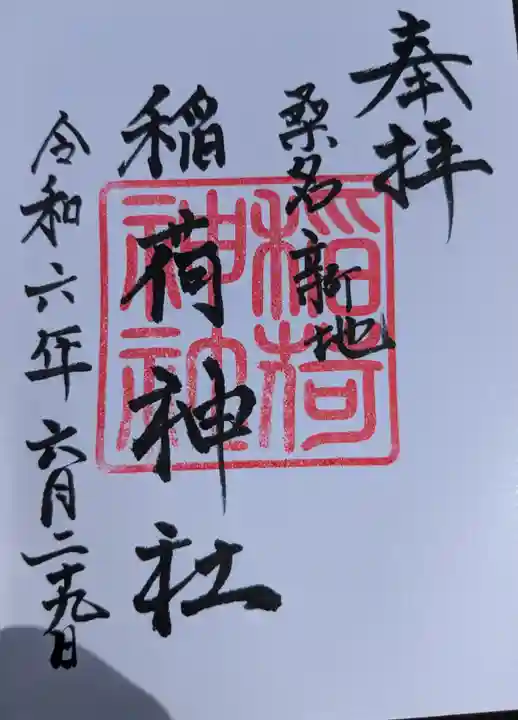 奉拝
桑名新地
稲荷神社
稲荷神社
令和六年六月二十九日